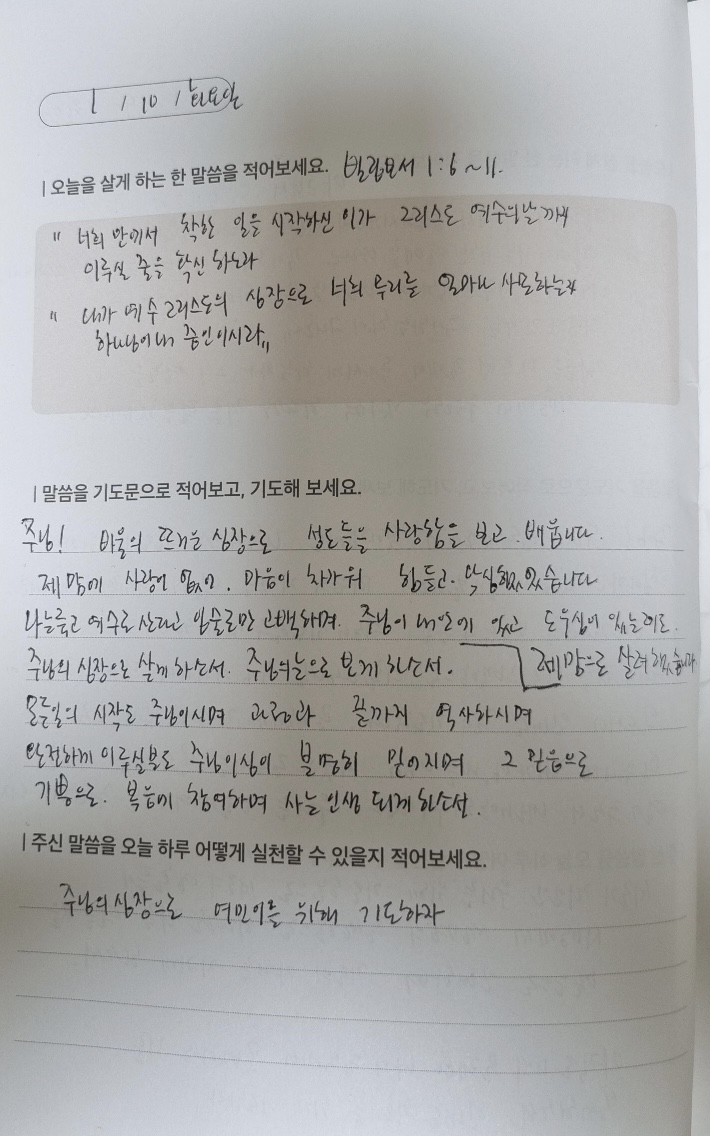 1 / 10 / 화요일
| 오늘을 살게 하는 한 말씀을 적어보세요. 빌립보서 1:6~11.
" 너희 안에서 착한 일을 시작하신 이가 그리스도 예수의 날까지
이루실 줄을 확신하노라
" 내가 예수 그리스도의 심장으로 너희 무리를 얼마나 사모하는지
하나님이 내 증인이시라"
| 말씀을 기도문으로 적어보고, 기도해 보세요.
주님! 바울의 뜨거운 심장으로 성도들을 사랑함을 보고 배웁니다.
제 맘에 사랑이 없어. 마음이 차가워 힘들고. 낙심하고 있었습니다
나는 죽고 예수로 산다고 입술로만 고백하며. 주님이 내안에 있고 도우심이 있는데도. 제 맘으로 살려했습니다
주님의 심장으로 살게 하소서. 주님의 눈으로 보게 하소서.
모든일의 시작도 주님이시며 과정과 끝까지 역사하시며
완전하게 이루실분도 주님이심이 분명히 믿어지며 그 믿음으로
기쁨으로. 복음에 참여하며 사는 인생 되게 하소서.
| 주신 말씀을 오늘 하루 어떻게 실천할 수 있을지 적어보세요.
주님의 심장으로 여민이를 위해 기도하자